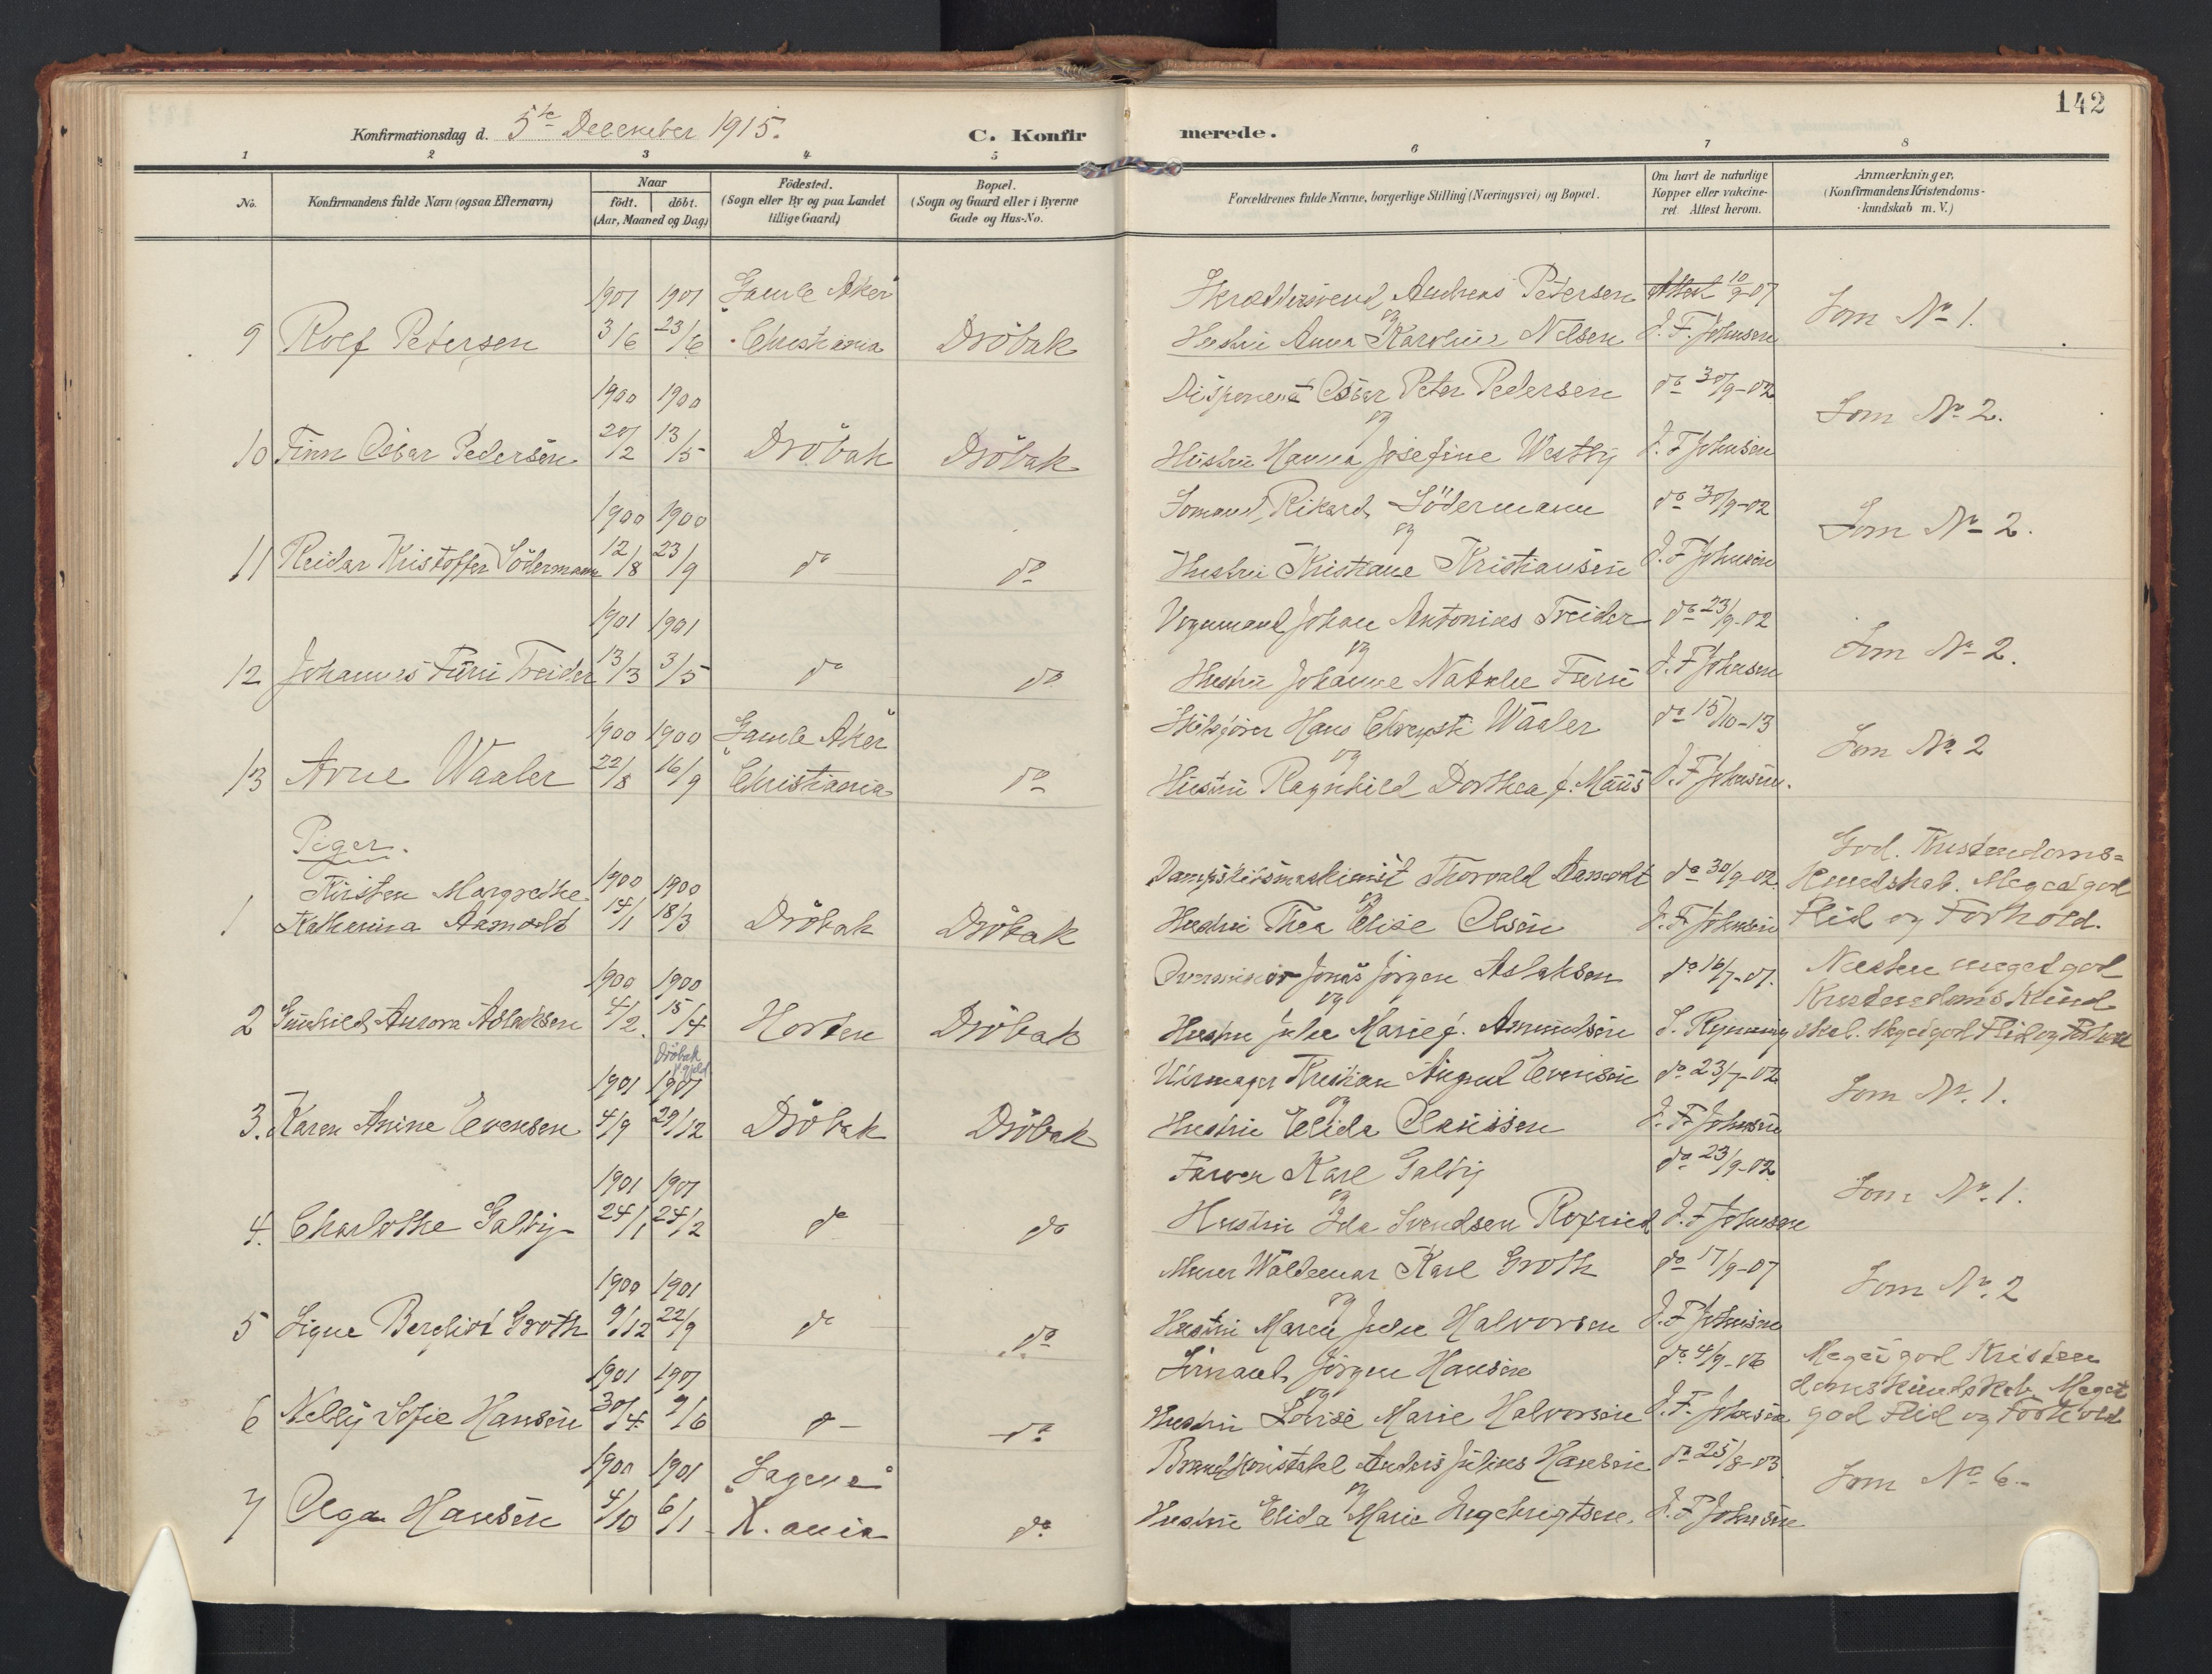 142
Konfirmationsdag d. 5te December 1915.
C. Konfirmerede.
1 2 3 4 5 6 7 8
No.
Konfirmandens fulde Navn (ogsaa Efternavn)
Naar
födt. döbt.
(Aar, Maaned og Dag)
Födested.
(Sogn eller By og paa Landet
tillige Gaard)
Bopæl.
(Sogn og Gaard eller i Byerne
Gade og Hus-No.
Forældrenes fulde Navne, borgerlige Stilling (Næringsvei) og Bopæl.
Om havt de naturlige
Kopper eller vakcine-
ret. Attest herom.
Anmærkninger.
(Konfirmandens Kristendoms-
kundskab m. V.)
1901 1901 Gamle Aker Skræddersvend Andreas Petersen Attest 10/9-07
og
9 Rolf Petersen 3/6 23/6 Christiania Dröbak Hustru Anna Karoline Nilsen J. F. Johnsen Som No 1.
1900 1900 Disponent Oskar Peter Pedersen do 30/9-02
og
10 Finn Oskar Pedersen 20/2 13/5 Dröbak Dröbak Hustru Hanna Josefine Westby J. F Johnsen Som No 2.
1900 1900 Sömand Rikard Södermann do 30/9-02
og
11 Reidar Kristoffer Södermann 12/8 23/9 do do Hustru Kristiane Kristiansen J. F Johnsen Som No 2.
1901 1901 Vognmand Johan Antonius Treider do 23/9-02
og
12 Johannes Furu Treider 13/3 3/5 do do Hustru Johanne Natalie Furu J. F Johnsen Som No 2.
1900 1900 Gamle Aker Hans Waaler do 15/10-13
og
13 Arne Waaler 22/8 16/9 Christiania do Hustru Ragnhild Dorthea f. J. F Johnsen. Som No 2
Piger.
Kirsten Margrethe 1900 1900 Dampskibsmaskinist Thorvald Aamodt do 30/9-02 God. Kristendoms=
og
1 Katharina Aamodt 14/1 18/3 Dröbak Dröbak Hustru Thea Elise Olsen J. F. Johnsen Kundskab. Meget god
Flid og Forhold.
1900 1900 Jonas Jörgen Aslaksen do 16/7-07. Næsten meget god
og
2 Gunhild Aurora Aslaksen 4/2. 15/4 Horten Dröbak Hustru Julie Marie f. Amundsen Kristendoms Kund-
skab. Meget god Flid og Forhold
Dröbak
1901 1901 Urmager Kristian August Evensen do 23/7-02
og
3. Karen Anine Evensen 4/9 29/12 Dröbak Dröbak Hustru Elida Clausen J. F. Johnsen Som No. 1.
1901 1901 Farver Karl Galby do 23/9-02
og
4. Charlothe Galby 24/1 24/2 do do Hustru Ida Svendsen J. F Johnsen Som No. 1.
1900 1901 Murer Waldemar Karl Groth do 17/9-07
og
5 Signe Bergliot Groth 9/12 22/9 do do Hustru Maren Julie Halvorsen J. F Johnsen Som No. 2
1901 1901 Sömand Jörgen Hansen do 4/9-06 Meget god Kristen
og
6 Nelly Sofie Hansen 30/4 9/6 do do Hustru Lovise Marie Halvorsen J. F. Johnsen domskundskab. Meget
god Flid og Forhold
1900 1901 Sagene Brandkonstabel Anders Julius Hansen do 25/8-03
og
7 Olga Hansen 4/10 6/1 K. ania do Hustru Elida Marie Ingebrigtsen. J. F Johnsen Som No 6.-